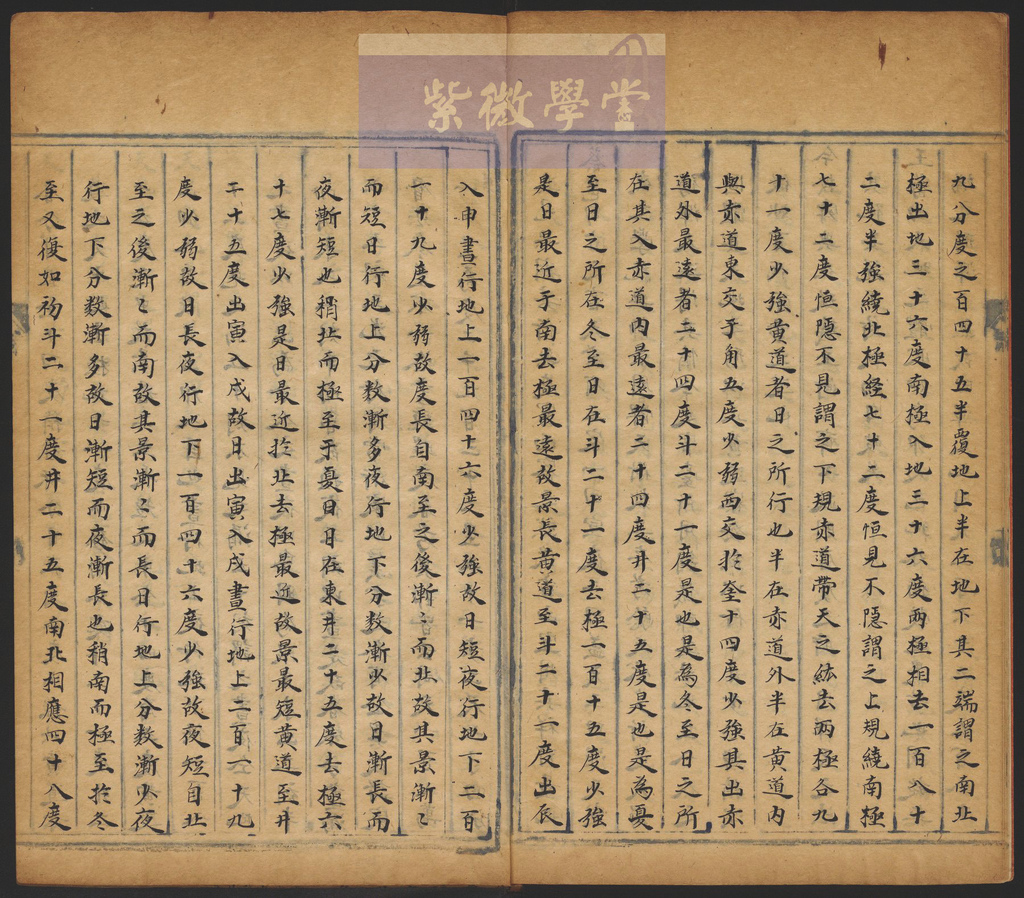 紫微學堂
九分度之百四十五半覆地上半在地下其二端謂之南北
極出地三十六度南極入地三十六度兩極相去一百八十
二度半強繞北極経七十二度恒見不隱謂之上規繞南極
七十二度恒隱不見謂之下規赤道帶天之紘去兩極各九
十一度少強黄道者日之所行也半在赤道外半在黄道内
與赤道東交于角五度少弱西交於奎十四度少強其出赤
道外最遠者二十四度斗二十一度是也是為冬至日之所
在其入赤道内最遠者二十四度井二十五度是也是為夏
至日之所在冬至日在斗二十一度去極一百十五度少強
是日最近于南去極最遠故景長黄道至斗二十一度出辰
入申晝行地上一百四十六度少強故日短夜行地下二百
一十九度少弱故度長自南至之後漸〻而北故其景漸〻
而短日行地上分数漸多夜行地下分数漸少故日漸長而
夜漸短也稍北而極至于夏日日在東井二十五度去極六
十七度少強是日最近於北去極最近故景最短黄道至井
二十五度出寅入戌故日出寅入戌晝行地上二百一十九
度少弱故日長夜行地下一百四十六度少強故夜短自北
至之後漸〻而南故其景漸〻而長日行地上分数漸少夜
行地下分数漸多故日漸短而夜漸長也稍南而極至於冬
至又復如初斗二十一度井二十五度南北相應四十八度